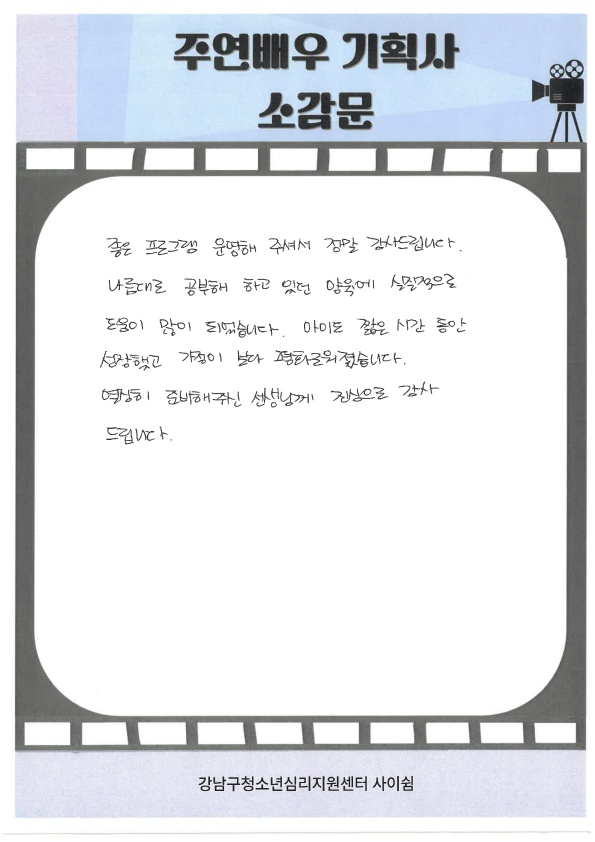 주연배우 기획사
소감문
좋은 프로그램 운영해 주셔서 정말 감사드립니다.
나름대로 공부해 하고 있던 양육에 실질적으로
도움이 많이 되었습니다. 아이도 짧은 시간 동안
성장했고 가정이 보다 평화로워졌습니다.
열심히 준비해주신 선생님께 진심으로 감사
드립니다.
강남구청소년심리지원센터 사이쉼